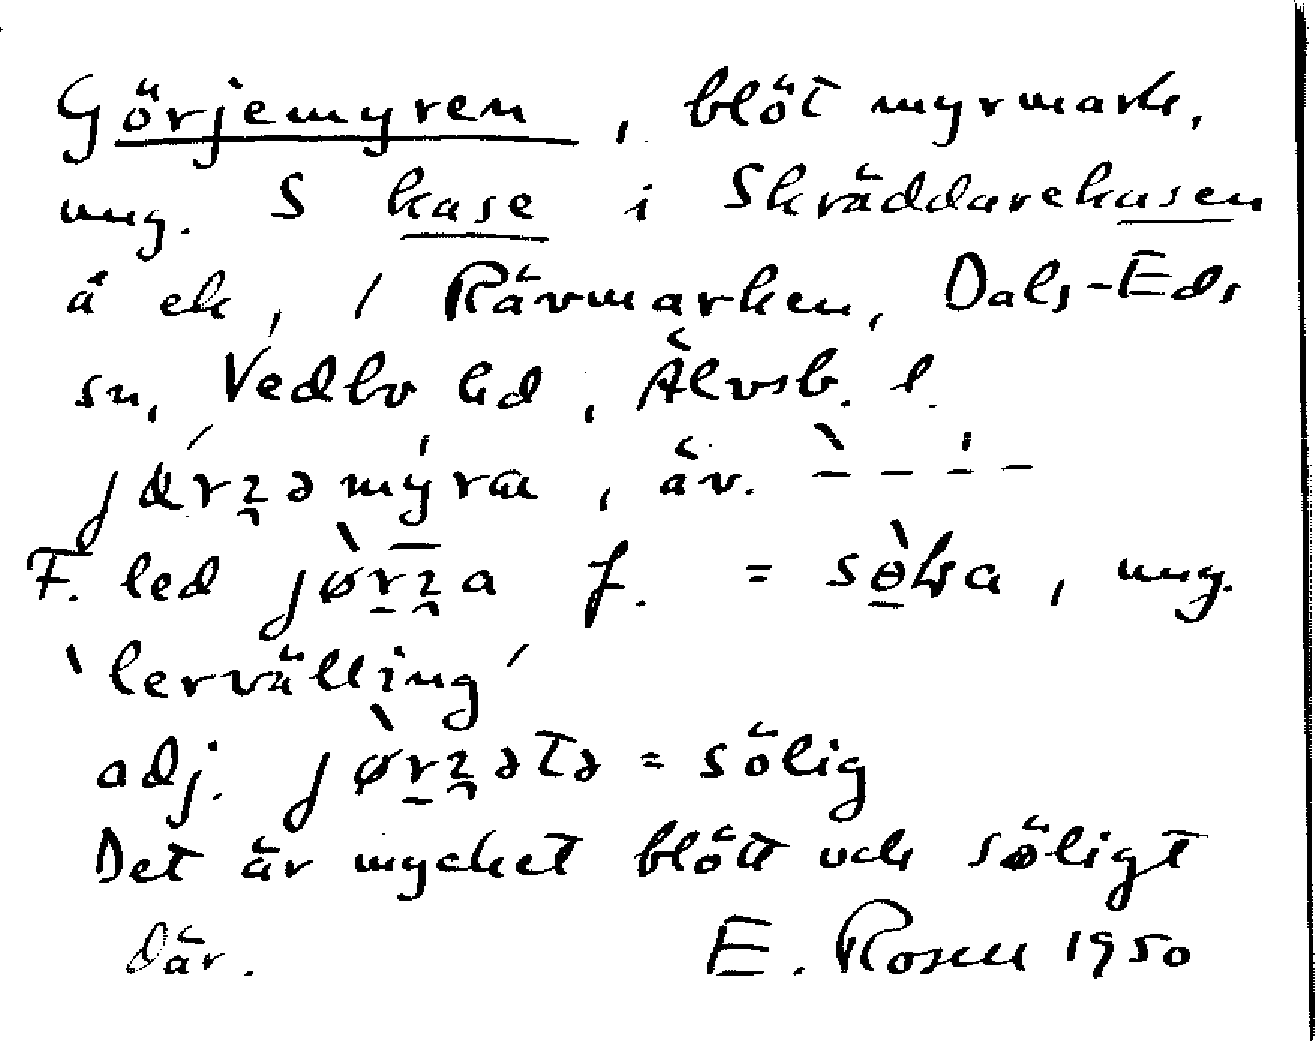 Görjemyren, blöt myrmark,
ung. S kase i Skräddarekasen
å ek, / Rävmarken, Dals-Eds
sn, Vedbo hd, Älvsb. l.
av.
F. led f. = ung.
`lervälling´
adj. = sölig
Det är mycket blött och söligt
där. E. Rosell 1950